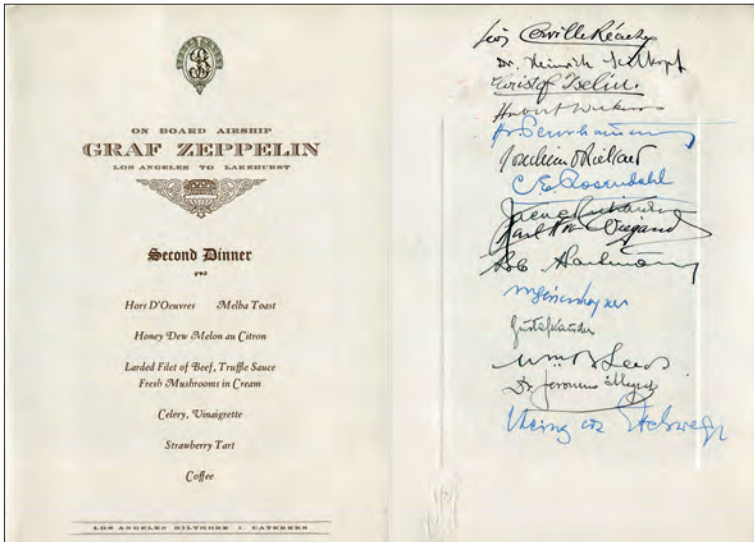 ON BOARD AIRSHIP
GRAF ZEPPELIN
LOS ANGELES TO LAKEHURST
Second Dinner
Hors D'Oeuvres Melba Toast
Honey Dew Melon au Citron
Larded Filet of Beef, Truffle Sauce
Fresh Mushrooms in Cream
Celery, Vinaigrette
Strawberry Tart
Coffee
LOS ANGELES BILTMORE CATERERS
Dr. Heinrich
Christof Iselin.
Hubert Wilkins
Joachim D. Rickard
C. E. Rosendahl
Karl H von Wiegand
Rob Hartmann
Gustaf Kauder
Wm B Leeds
Dr. Jeronimo Megias
Heinz von